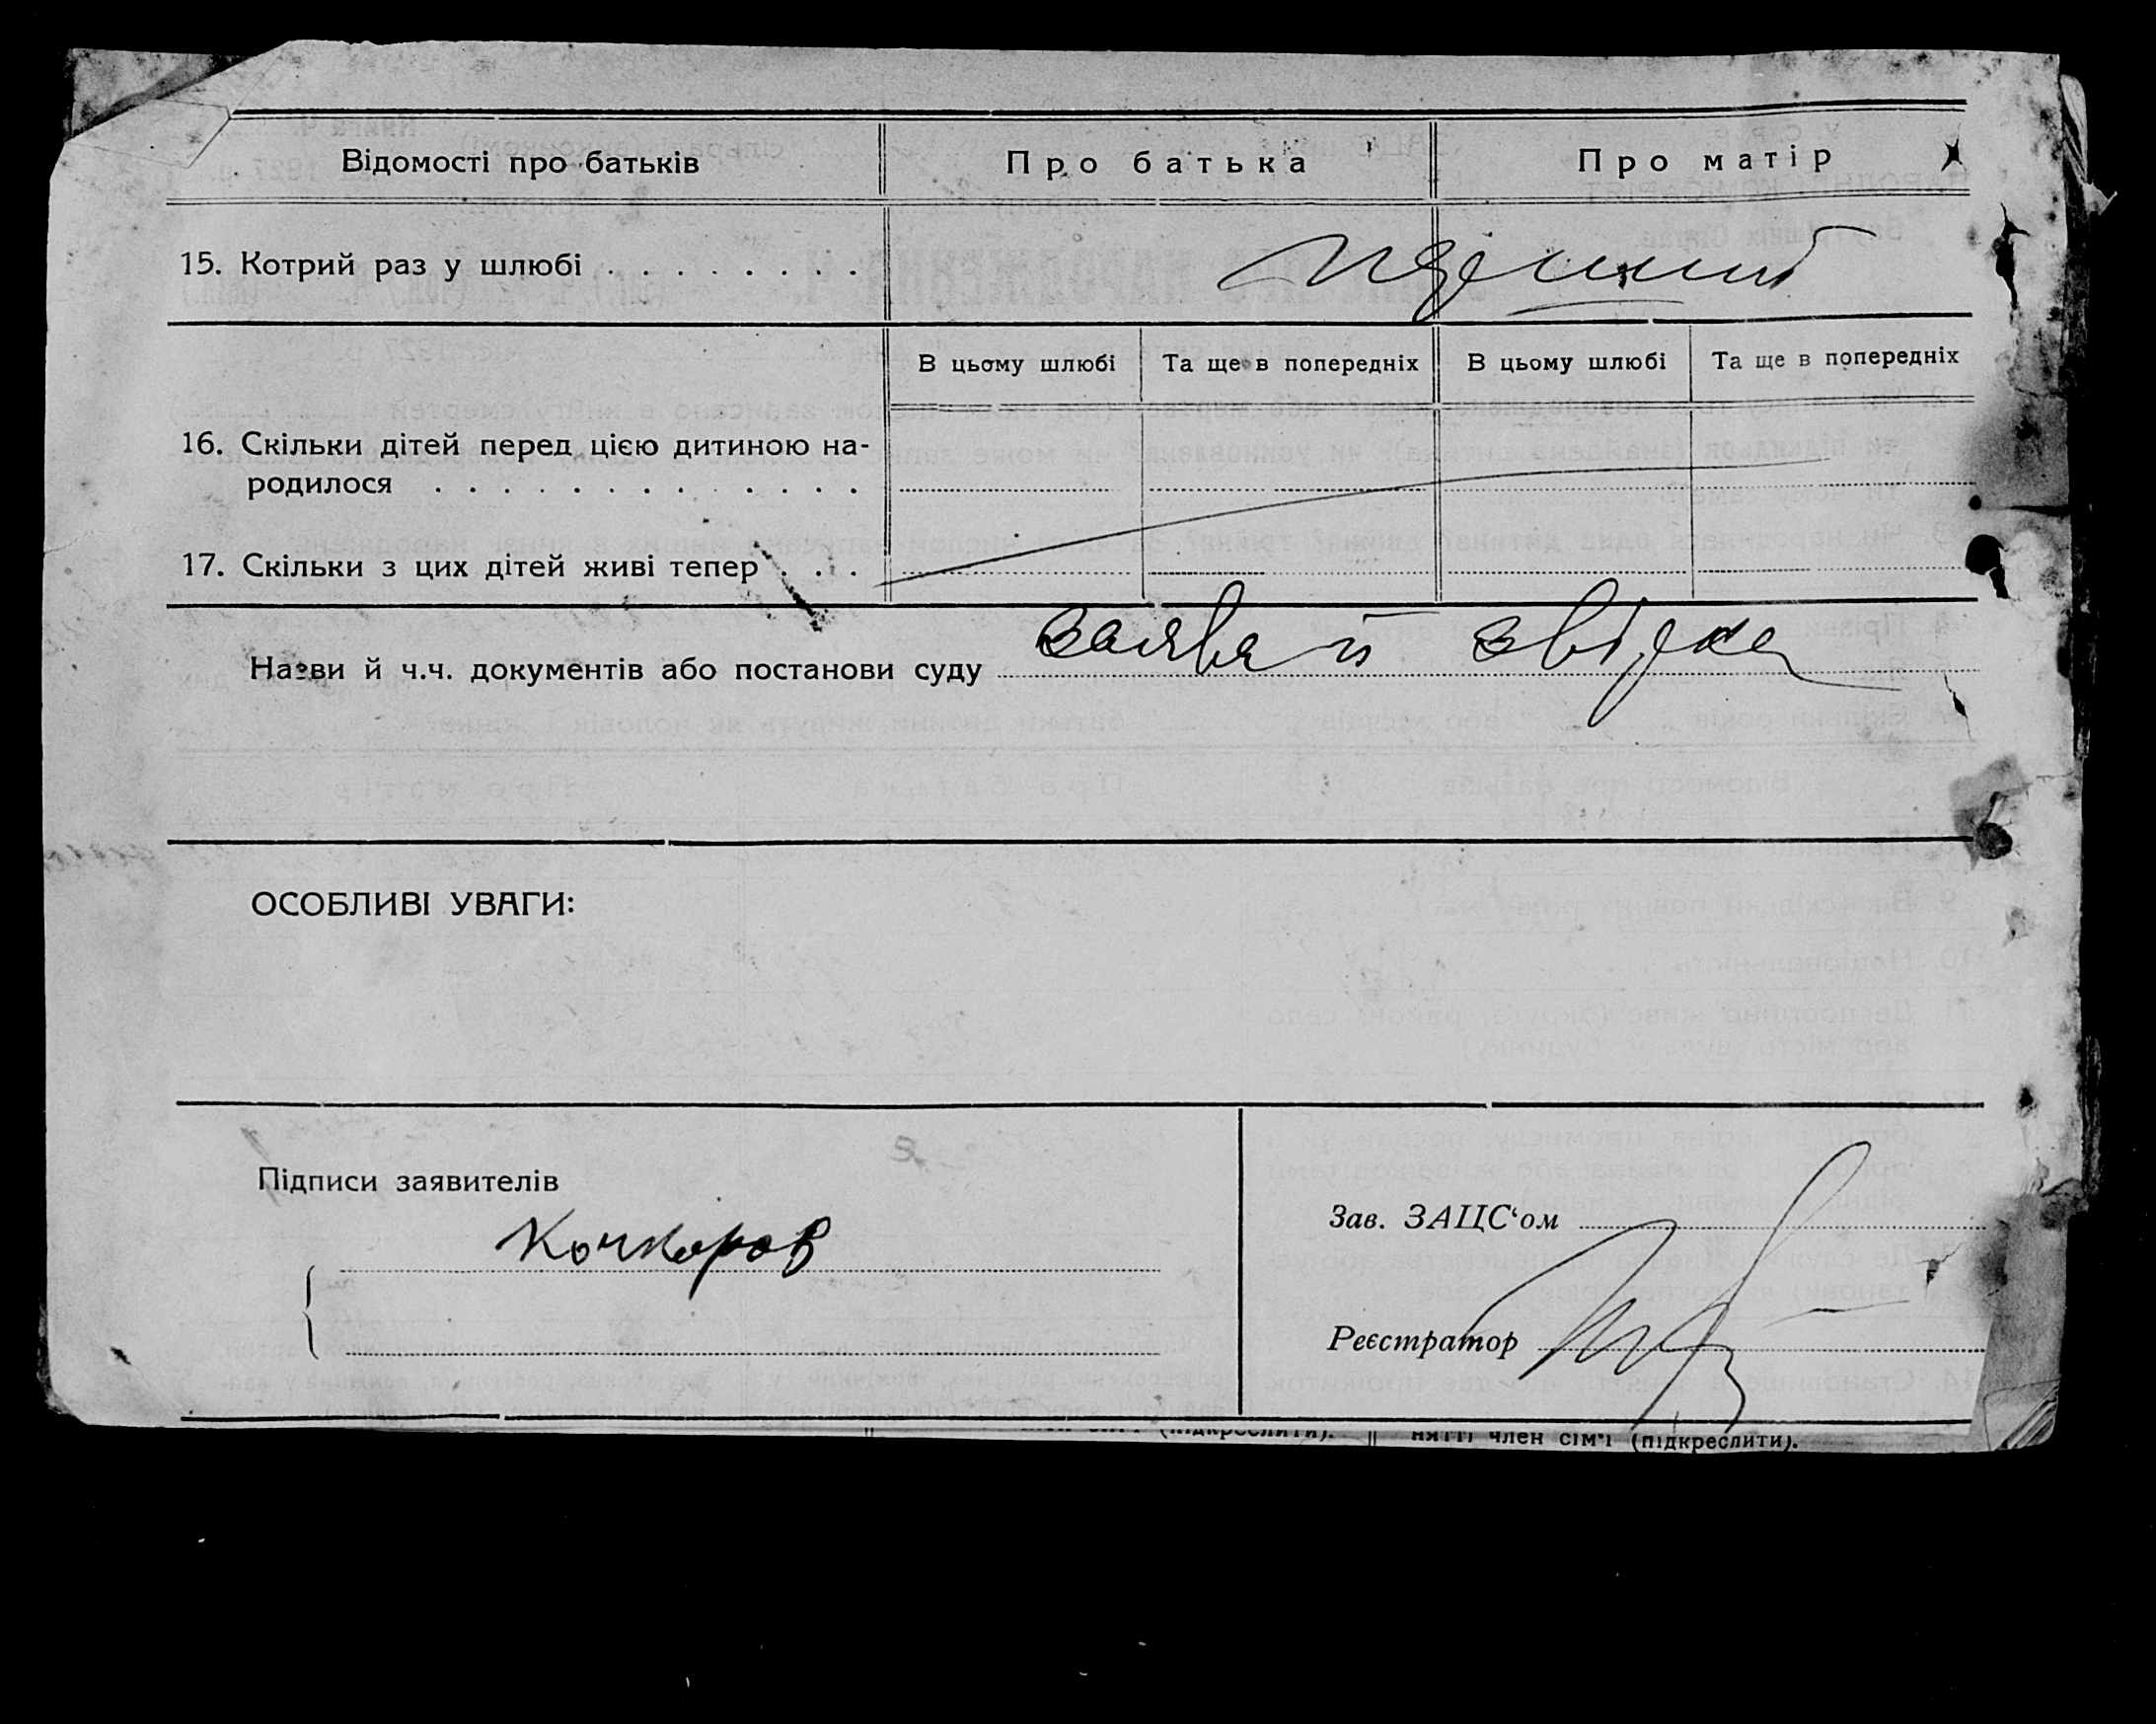 Відомості про батьків
Про батька
Про матір
15. Котрий раз у шлюбі . . . . . . . .
В цьому шлюбі
Та ще в попередніх
В цьому шлюбі
Та ще в попередніх
16. Скільки дітей перед цією дитиною на-
родилося . . . . . . . . . . . . .
17. Скільки з цих дітей живі тепер . . .
Назви й ч.ч. документів або постанови суду заява й звідка
ОСОБЛИВІ УВАГИ:
Підписи заявителів
Кочкаров
Зав. ЗАЦС‘ом
Реєстратор
(підкреслити). няттї член сім'ї (підкреслити).